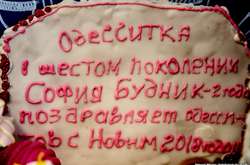 Одесситка
в шестом поколении
София Будник-2года
поздравляет одесси-
тов с Новым 2018 годом